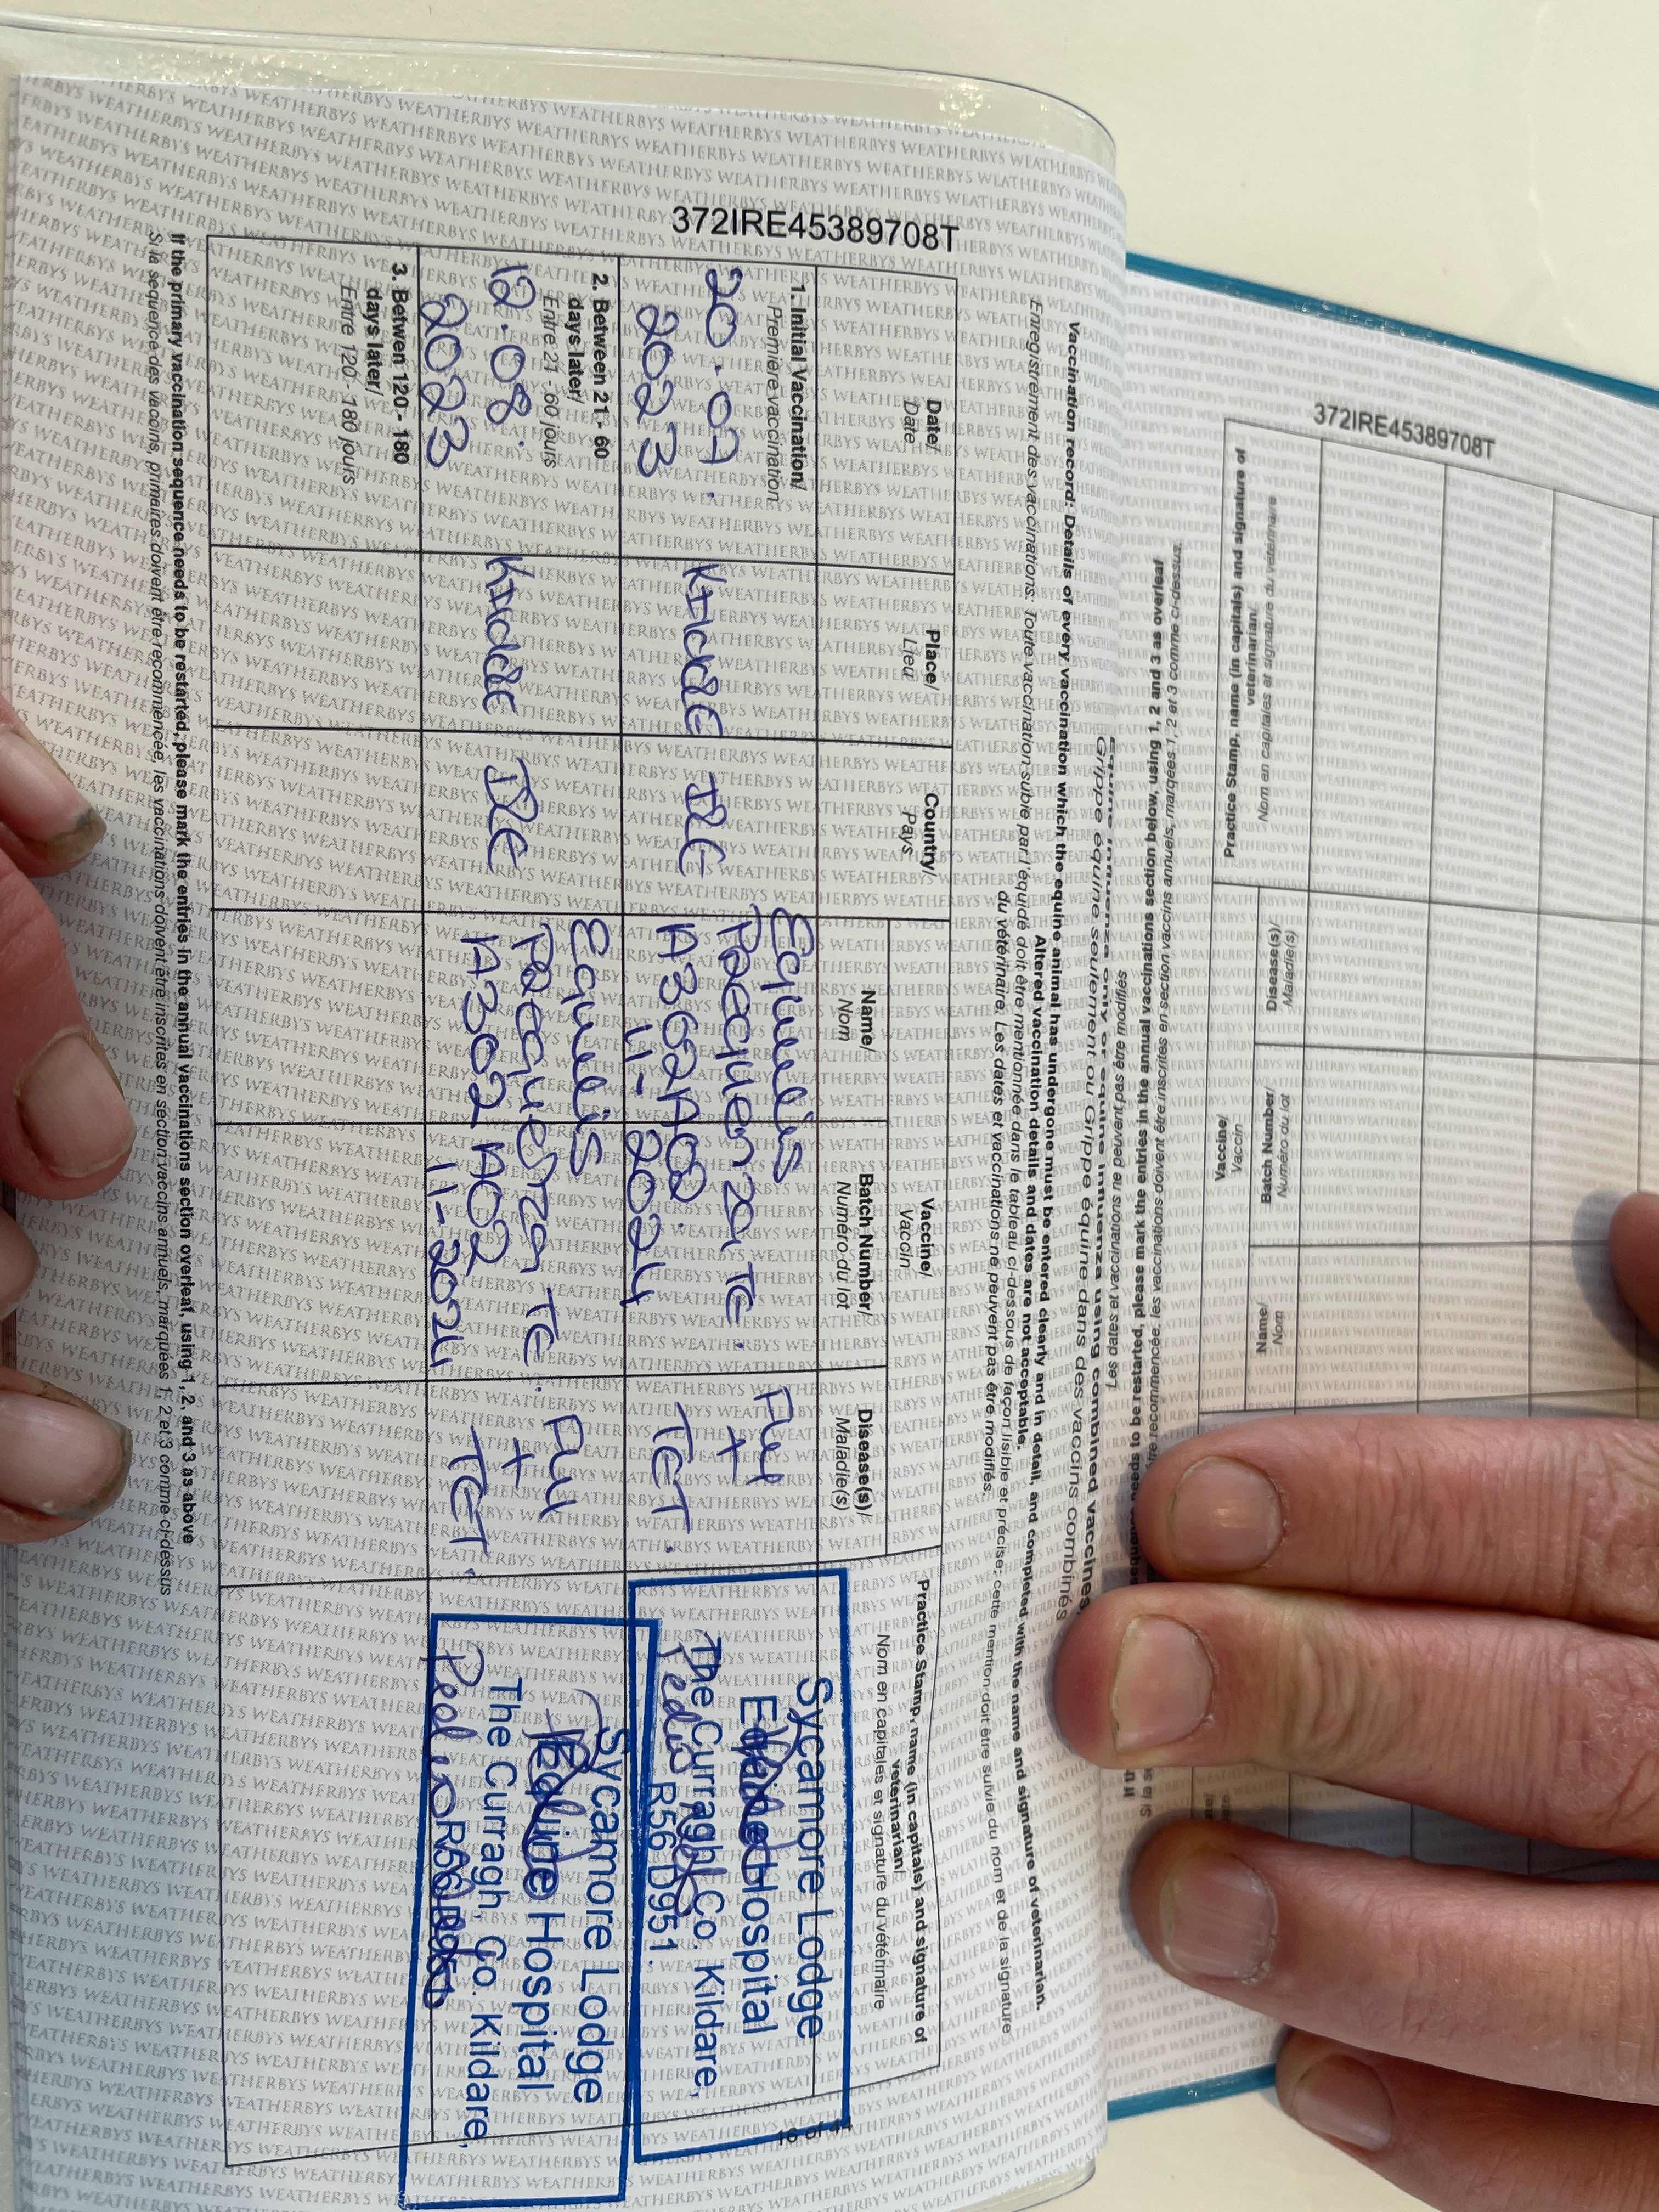 372IRE45389708T
Vaccination record: Details of every vaccination which the equine animal has undergone must be entered clearly and in detail, and completed with the name and signature of veterinarian.
Altered vaccination details and dates are not acceptable.
Enregistrement des vaccinations: Toute vaccination subie par l'équidé doit être mentionnée dans le tableau ci-dessous de façon lisible et précise; cette mention doit être suivie du nom et de la signature
du vétérinaire. Les dates et vaccinations ne peuvent pas être modifiés.
Date/
Date
Place/
Lieu
Country/
Pays
Vaccine/
Vaccin
Name/
Nom
Batch Number/
Numéro du lot
Disease(s)/
Maladie(s)
Practice Stamp, name (in capitals) and signature of
veterinarian/
Nom en capitales et signature du vétérinaire
1. Initial Vaccination/
Première vaccination
20.07.
2023
Kildare
IRE
Equilis
Prequenza Te.
A362A08.
11-2024
Flu
+
TET.
Sycamore Lodge
Equine Hospital
The Curragh, Co. Kildare,
R56D951.
2. Between 21 - 60
days later/
Entre 21 - 60 jours
12.08.
2023
Kildare
IRE
Equilis
Prequenza Te
A362A02
11-2024
Flu
+
TET.
Sycamore Lodge
Equine Hospital
The Curragh, Co. Kildare,
3. Betwen 120 - 180
days later/
Entre 120 - 180 jours
If the primary vaccination sequence needs to be restarted, please mark the entries in the annual vaccinations section overleaf, using 1, 2, and 3 as above
Si la sequence des vaccins, primaires doivent être recommencée, les vaccinations doivent être inscrites en section vaccins annuels, marquées 1, 2 et 3 comme ci-dessus
16 of 44
372IRE45389708T
Grippe équine seulement ou Grippe équine dans des vaccins combinés
Les dates et vaccinations ne peuvent pas être modifiés
needs to be restarted, please mark the entries in the annual vaccinations section below, using 1, 2 and 3 as overleaf
recommencée, les vaccinations doivent être inscrites en section vaccins annuels, marqées 1, 2 et 3 comme ci-dessus.
Practice Stamp, name (in capitals) and signature of
veterinarian/
Nom en capitales et signature du vétérinaire
Vaccine/
Vaccin
Disease(s)/
Maladie(s)
Batch Number/
Numéro du lot
Name/
Nom